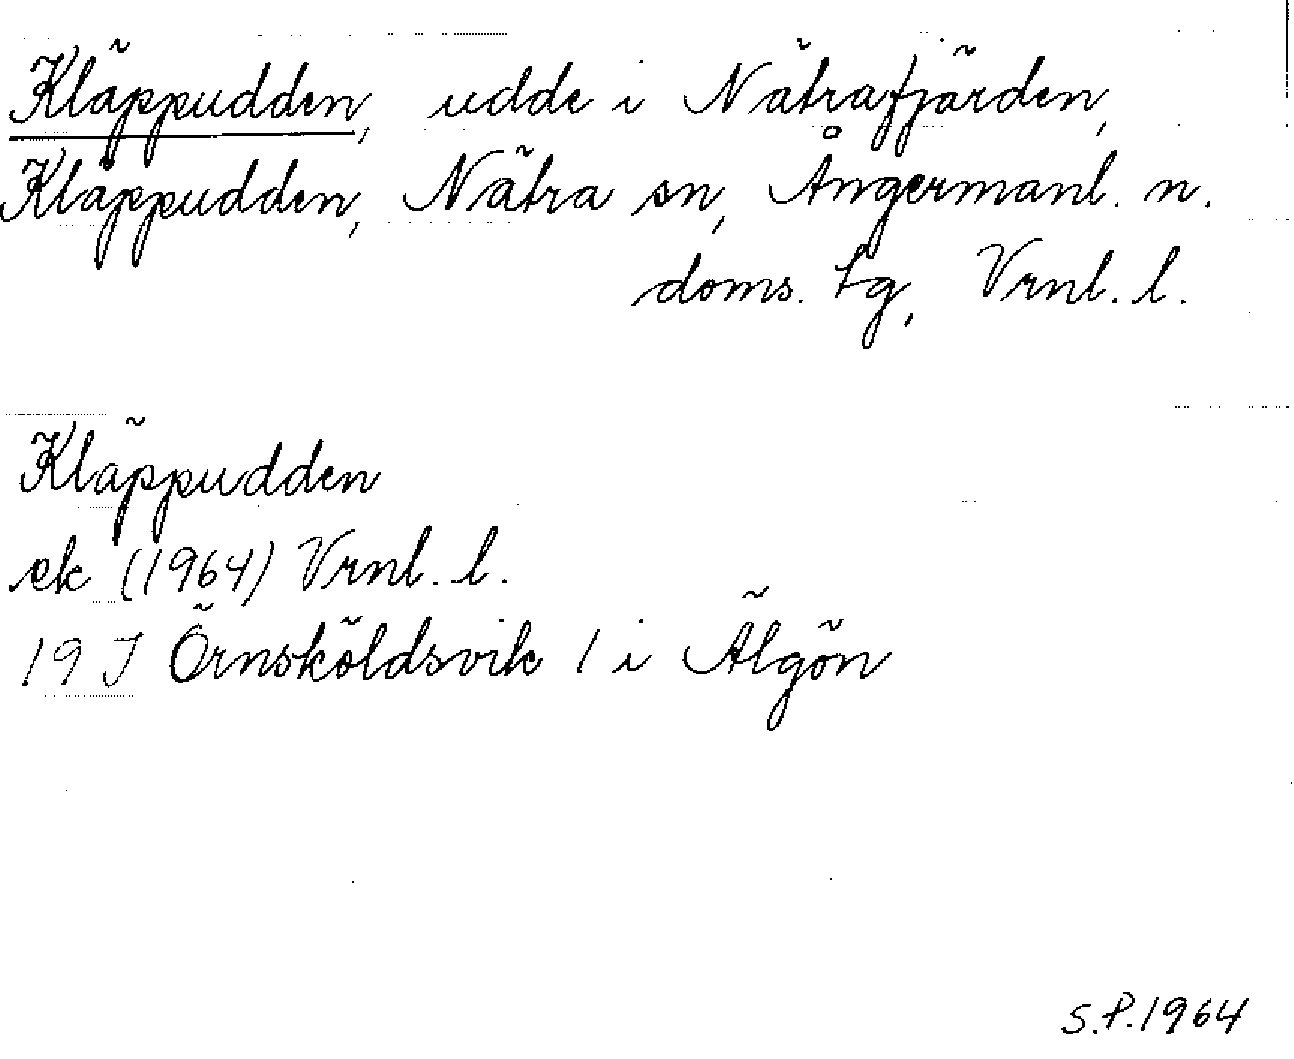 Kläppudden, udde i Nätrafjärden,
Kläppudden, Nätra sn, Ångermanl. n.
doms. tg, Vrnl. l.
Kläppudden
ek (1964) Vrnl. l.
19 J Örnsköldsvik 1 i Älgön
S.P. 1964